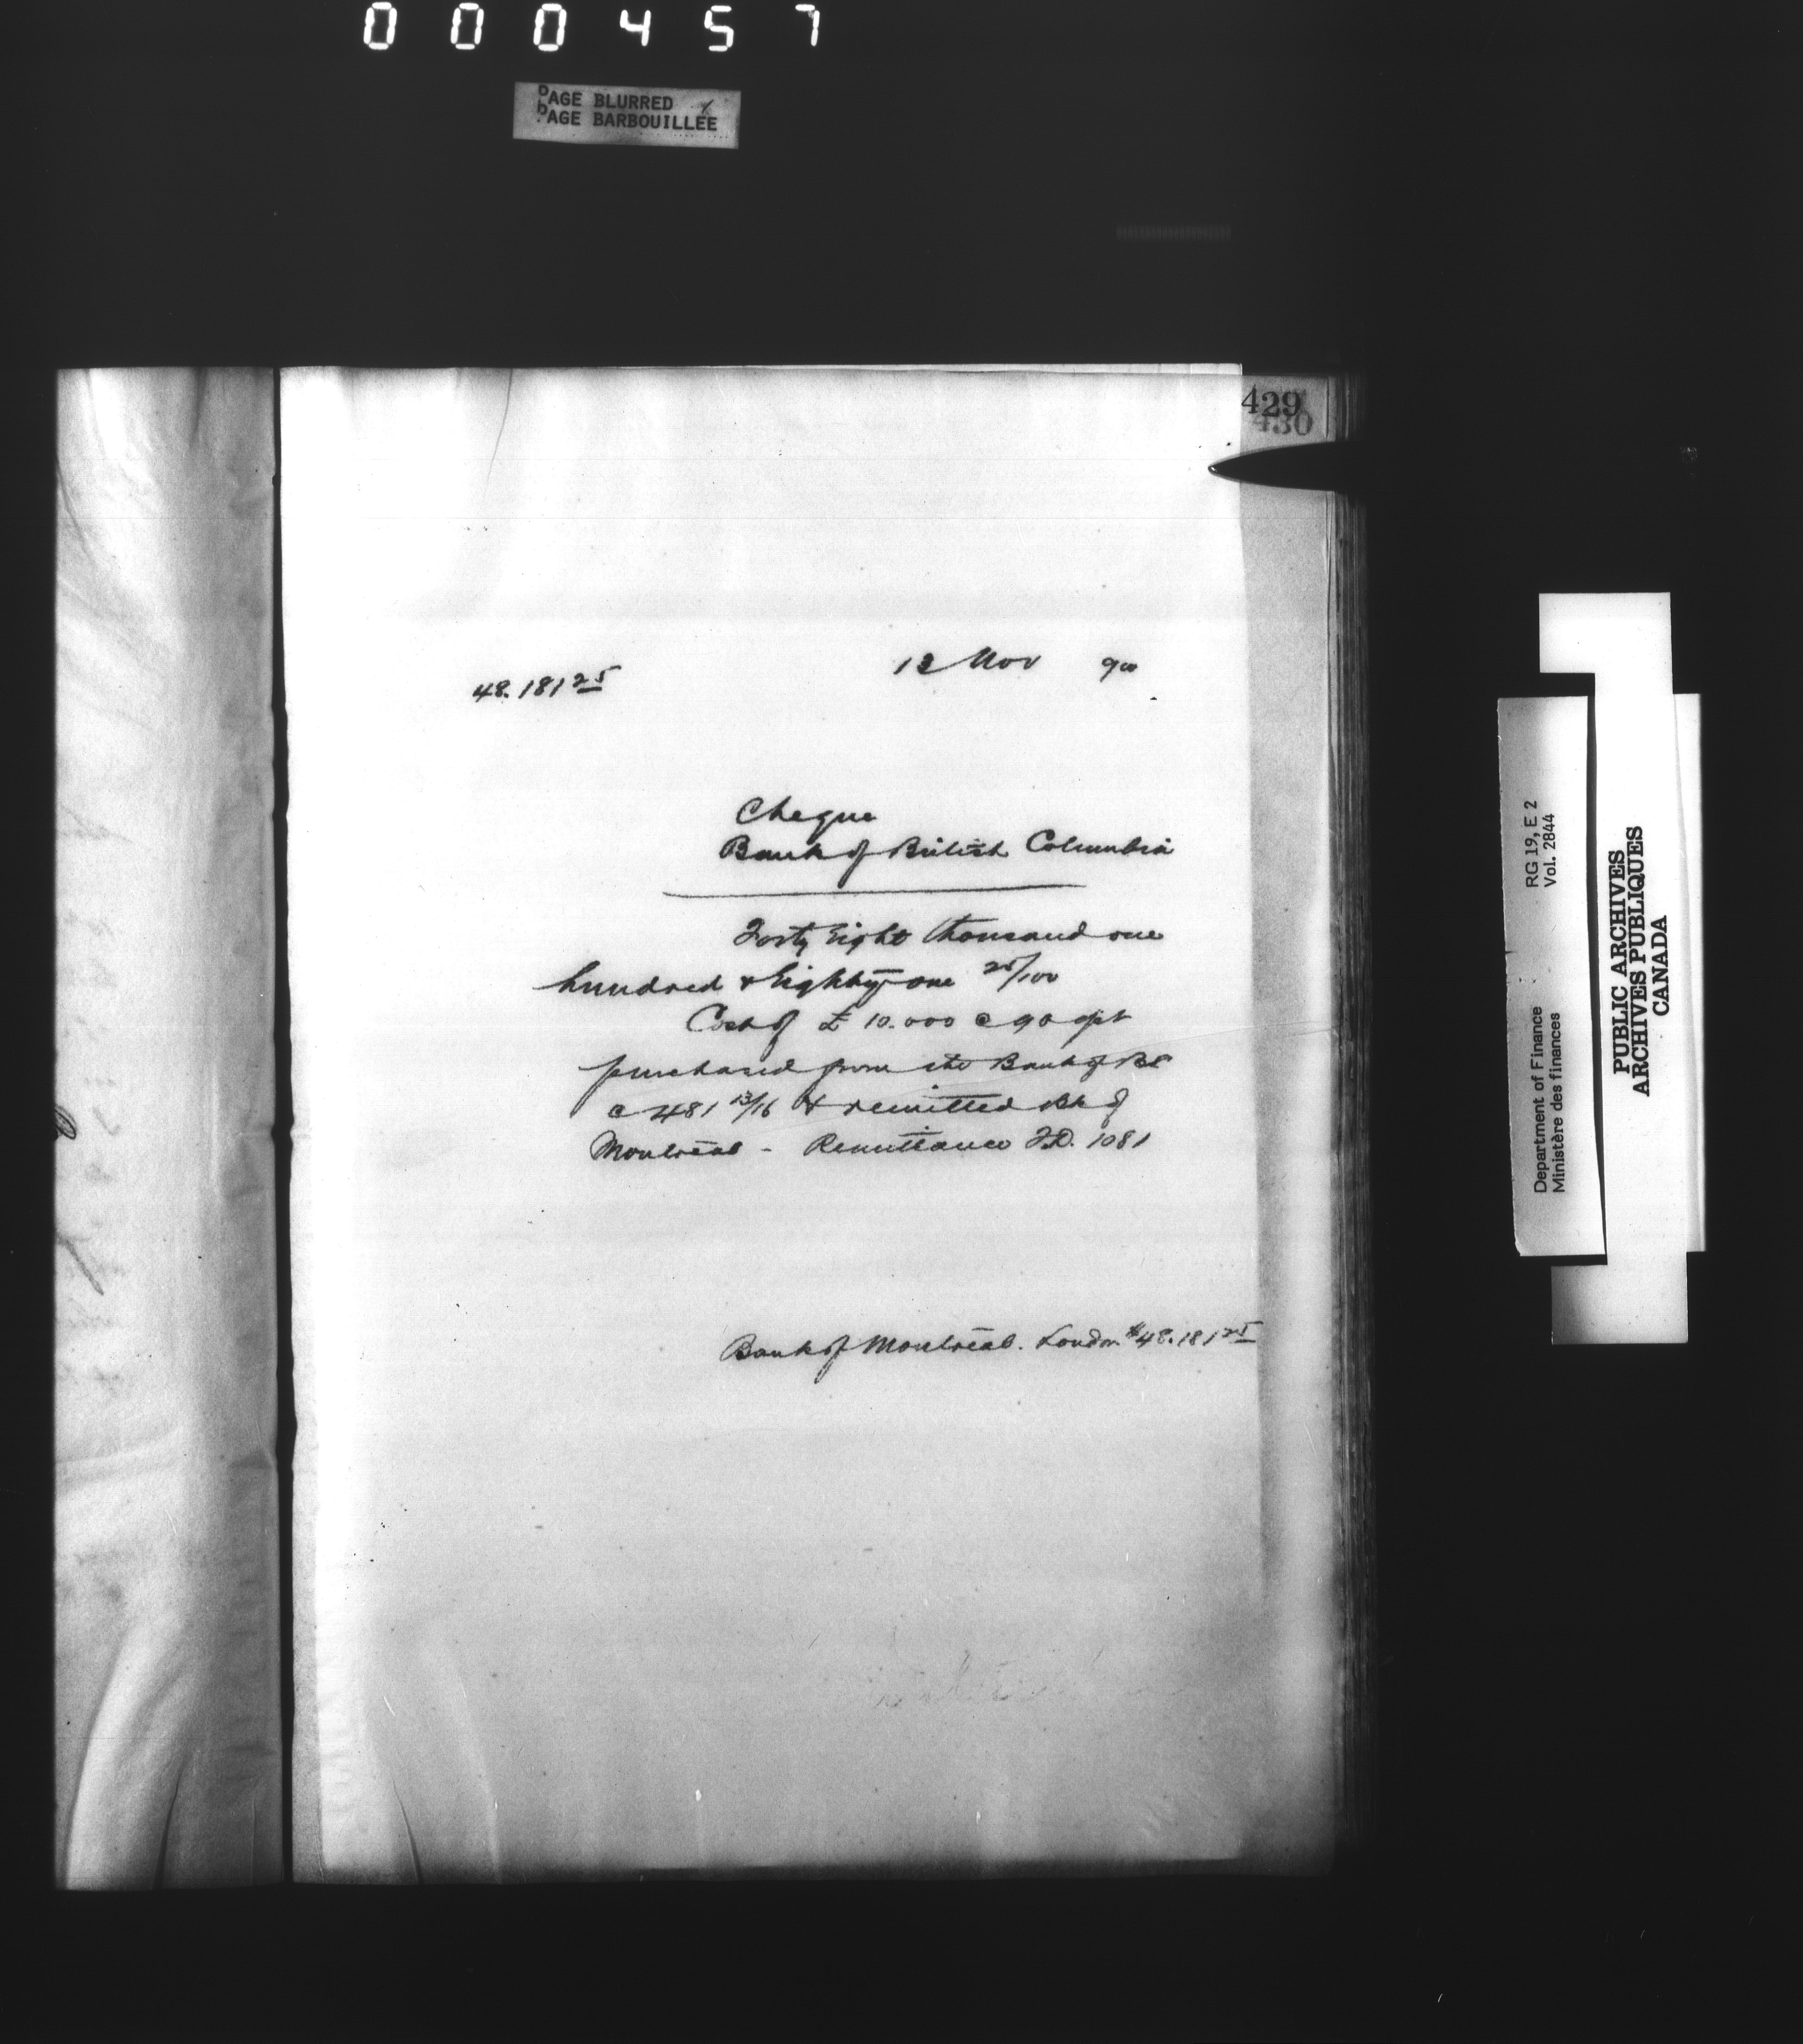 000457
PAGE BLURRED
PAGE BARBOUILLÉE
429
430
13 Nov 900
48.181 25
Cheque
Bank of British Columbia
Forty Eight thousand one
hundred & Eighty one 25/100
Cost of £ 10.000 @ 90
purchased from the Bank of BC
@ 481 13/16 & remitted Bk of
Montreal - Remittance F.D. 1081
Bank of Montreal. London $48.181 25
Department of Finance RG 19, E 2
Ministère des finances Vol. 2844
PUBLIC ARCHIVES
ARCHIVES PUBLIQUES
CANADA